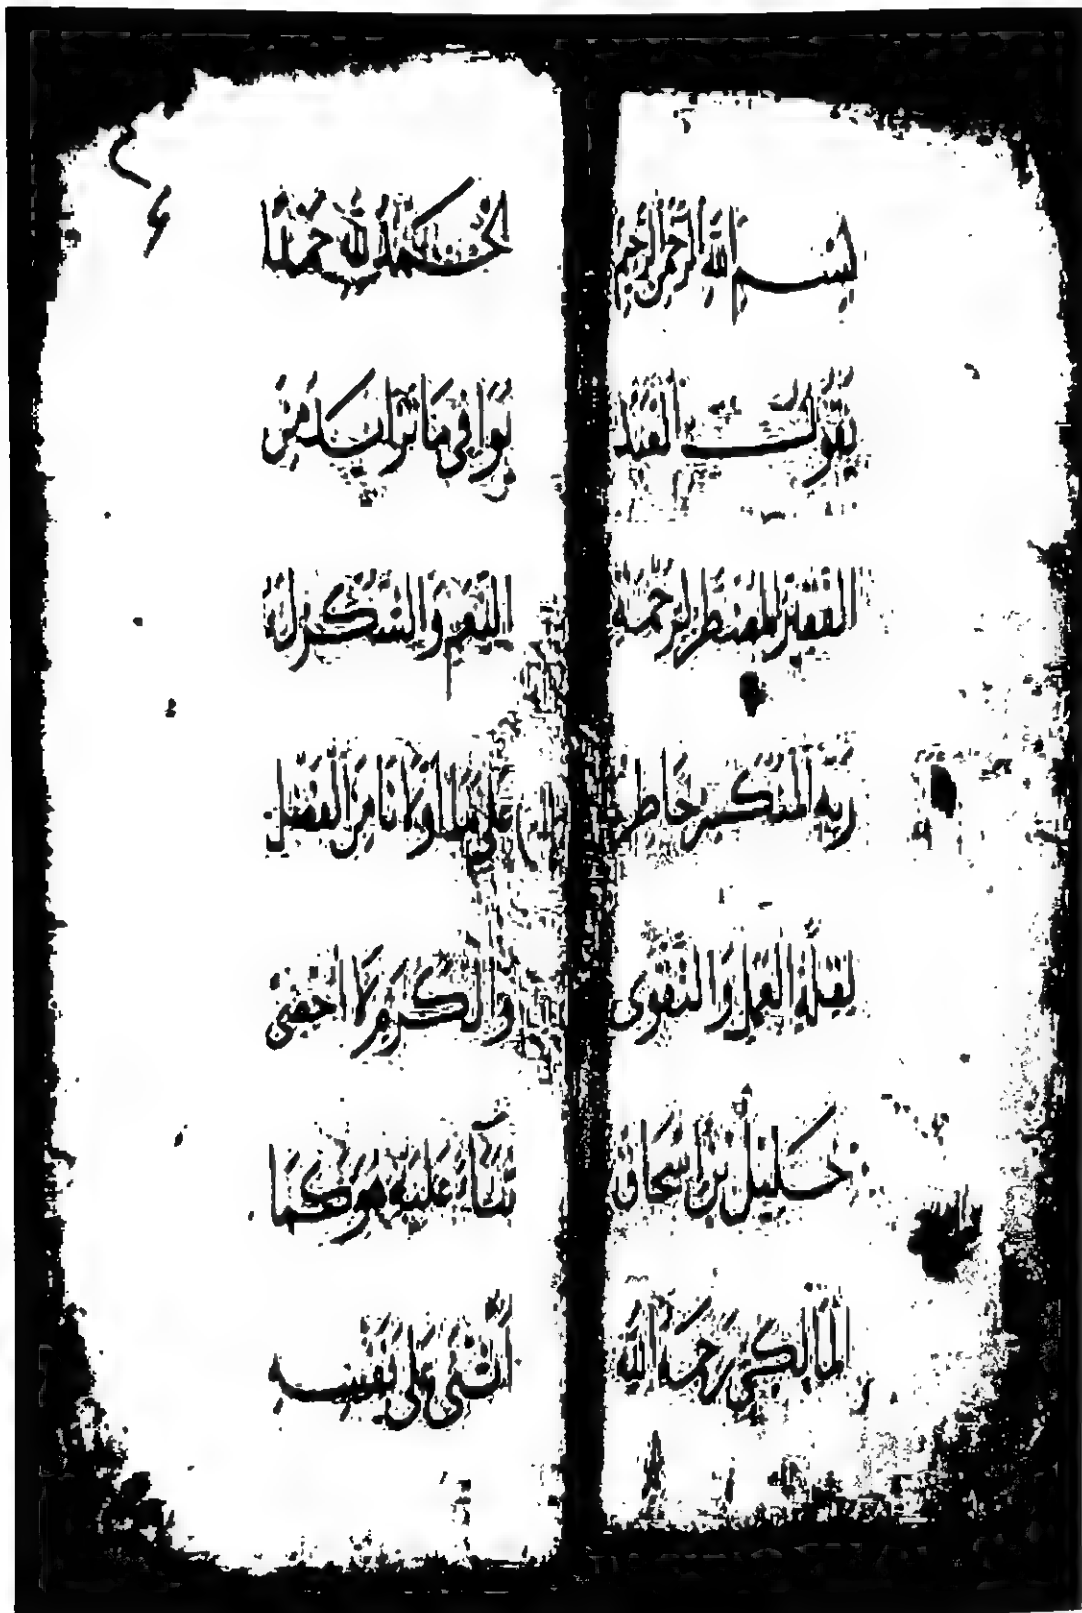 بسم الله الرحمن الرحيم
يقول العبد
الفقير المضطر لرحمة
ربه المنكسر خاطره
لقلة العمل والتقوى
خليل بن اسحاق
المالكي رحمه الله
الحمد لله حمدا
يوافي ما تزايد من
النعم والشكر له
على ما اولانا من الفضل
والكرم لا احصي
ثناء عليه هو كما
اثنى على نفسه